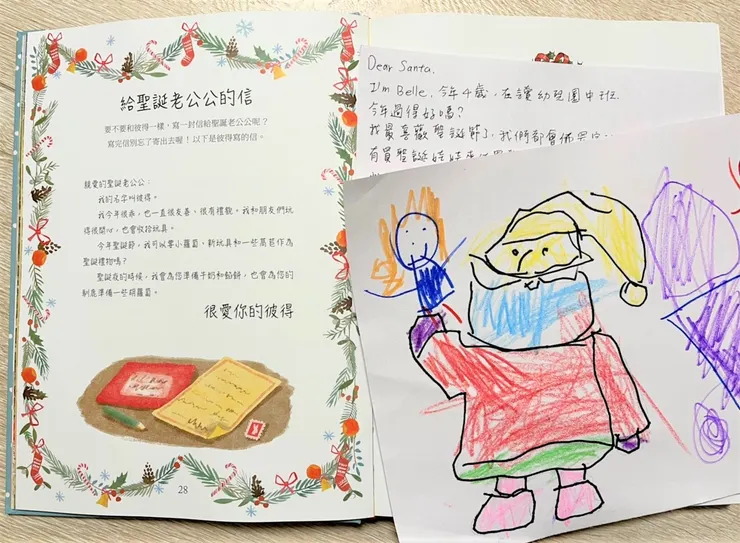 給聖誕老公公的信
要不要和彼得一樣，寫一封信給聖誕老公公呢？
寫完信別忘了寄出去喔！以下是彼得寫的信。
親愛的聖誕老公公：
我的名字叫彼得。
我今年很乖，也一直很友善、很有禮貌。我和朋友們玩
得很開心，也會收拾玩具。
今年聖誕節，我可以要小蘿蔔、新玩具和一些萵苣作為
聖誕禮物嗎？
聖誕夜的時候，我會為您準備牛奶和餡餅，也會為您的
馴鹿準備一些胡蘿蔔。
很愛你的彼得
28
Dear Santa,
I'm Belle, 今年4歲, 在讀幼兒園中班.
今年過得好嗎？
我最喜歡聖誕節了, 我們都會佈
有買聖誕